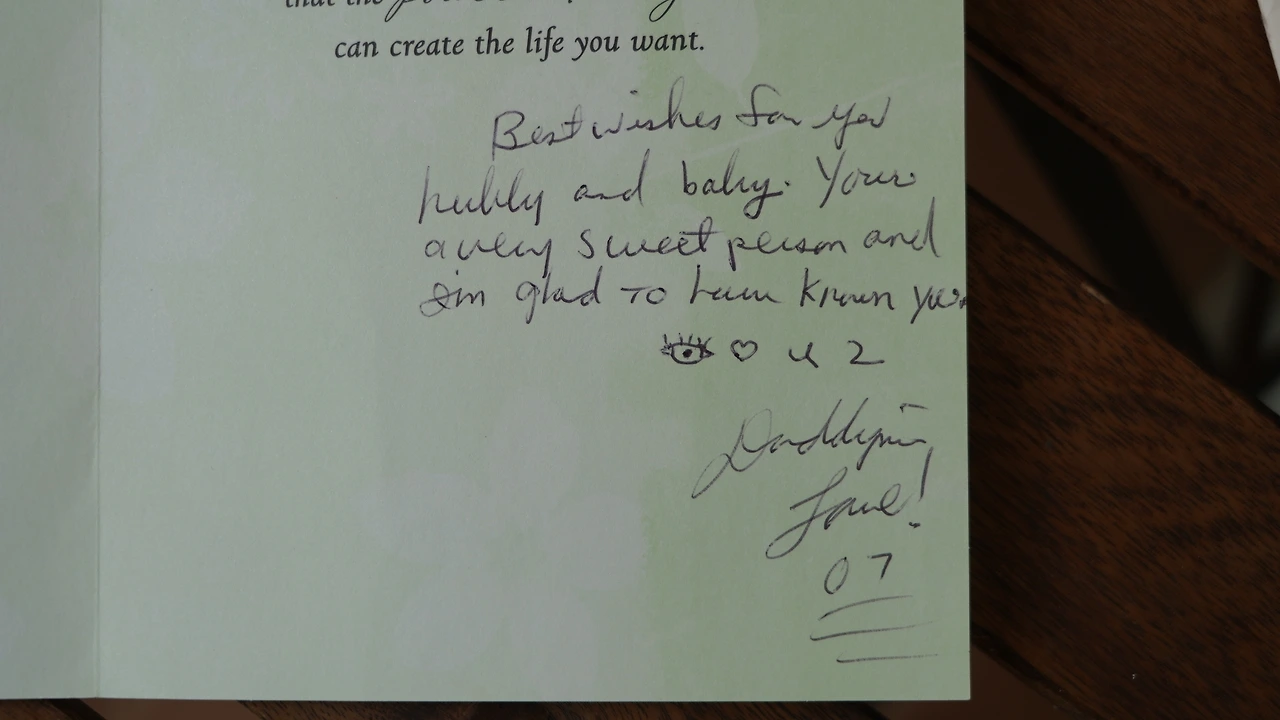 that the
can create the life you want.
Best wishes for you
hubby and baby. Your
a very sweet person and
I'm glad to have known you
u 2
Love!
07